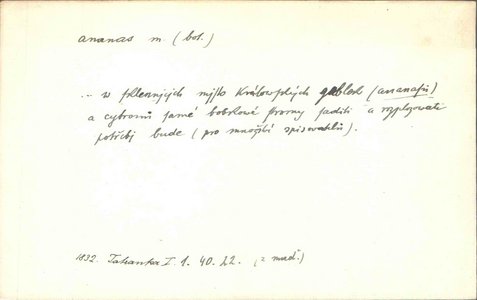 ananas m. (bot.)
... w sklennjcých mjsto Králowských gablek (ananasů)
a cytronů samé bobkowé stromy saditi a rozplozowati
potřebj bude (pro množstí spisowatelů).
1832. Tatranka I. 1. 40. 22. (z maď.)